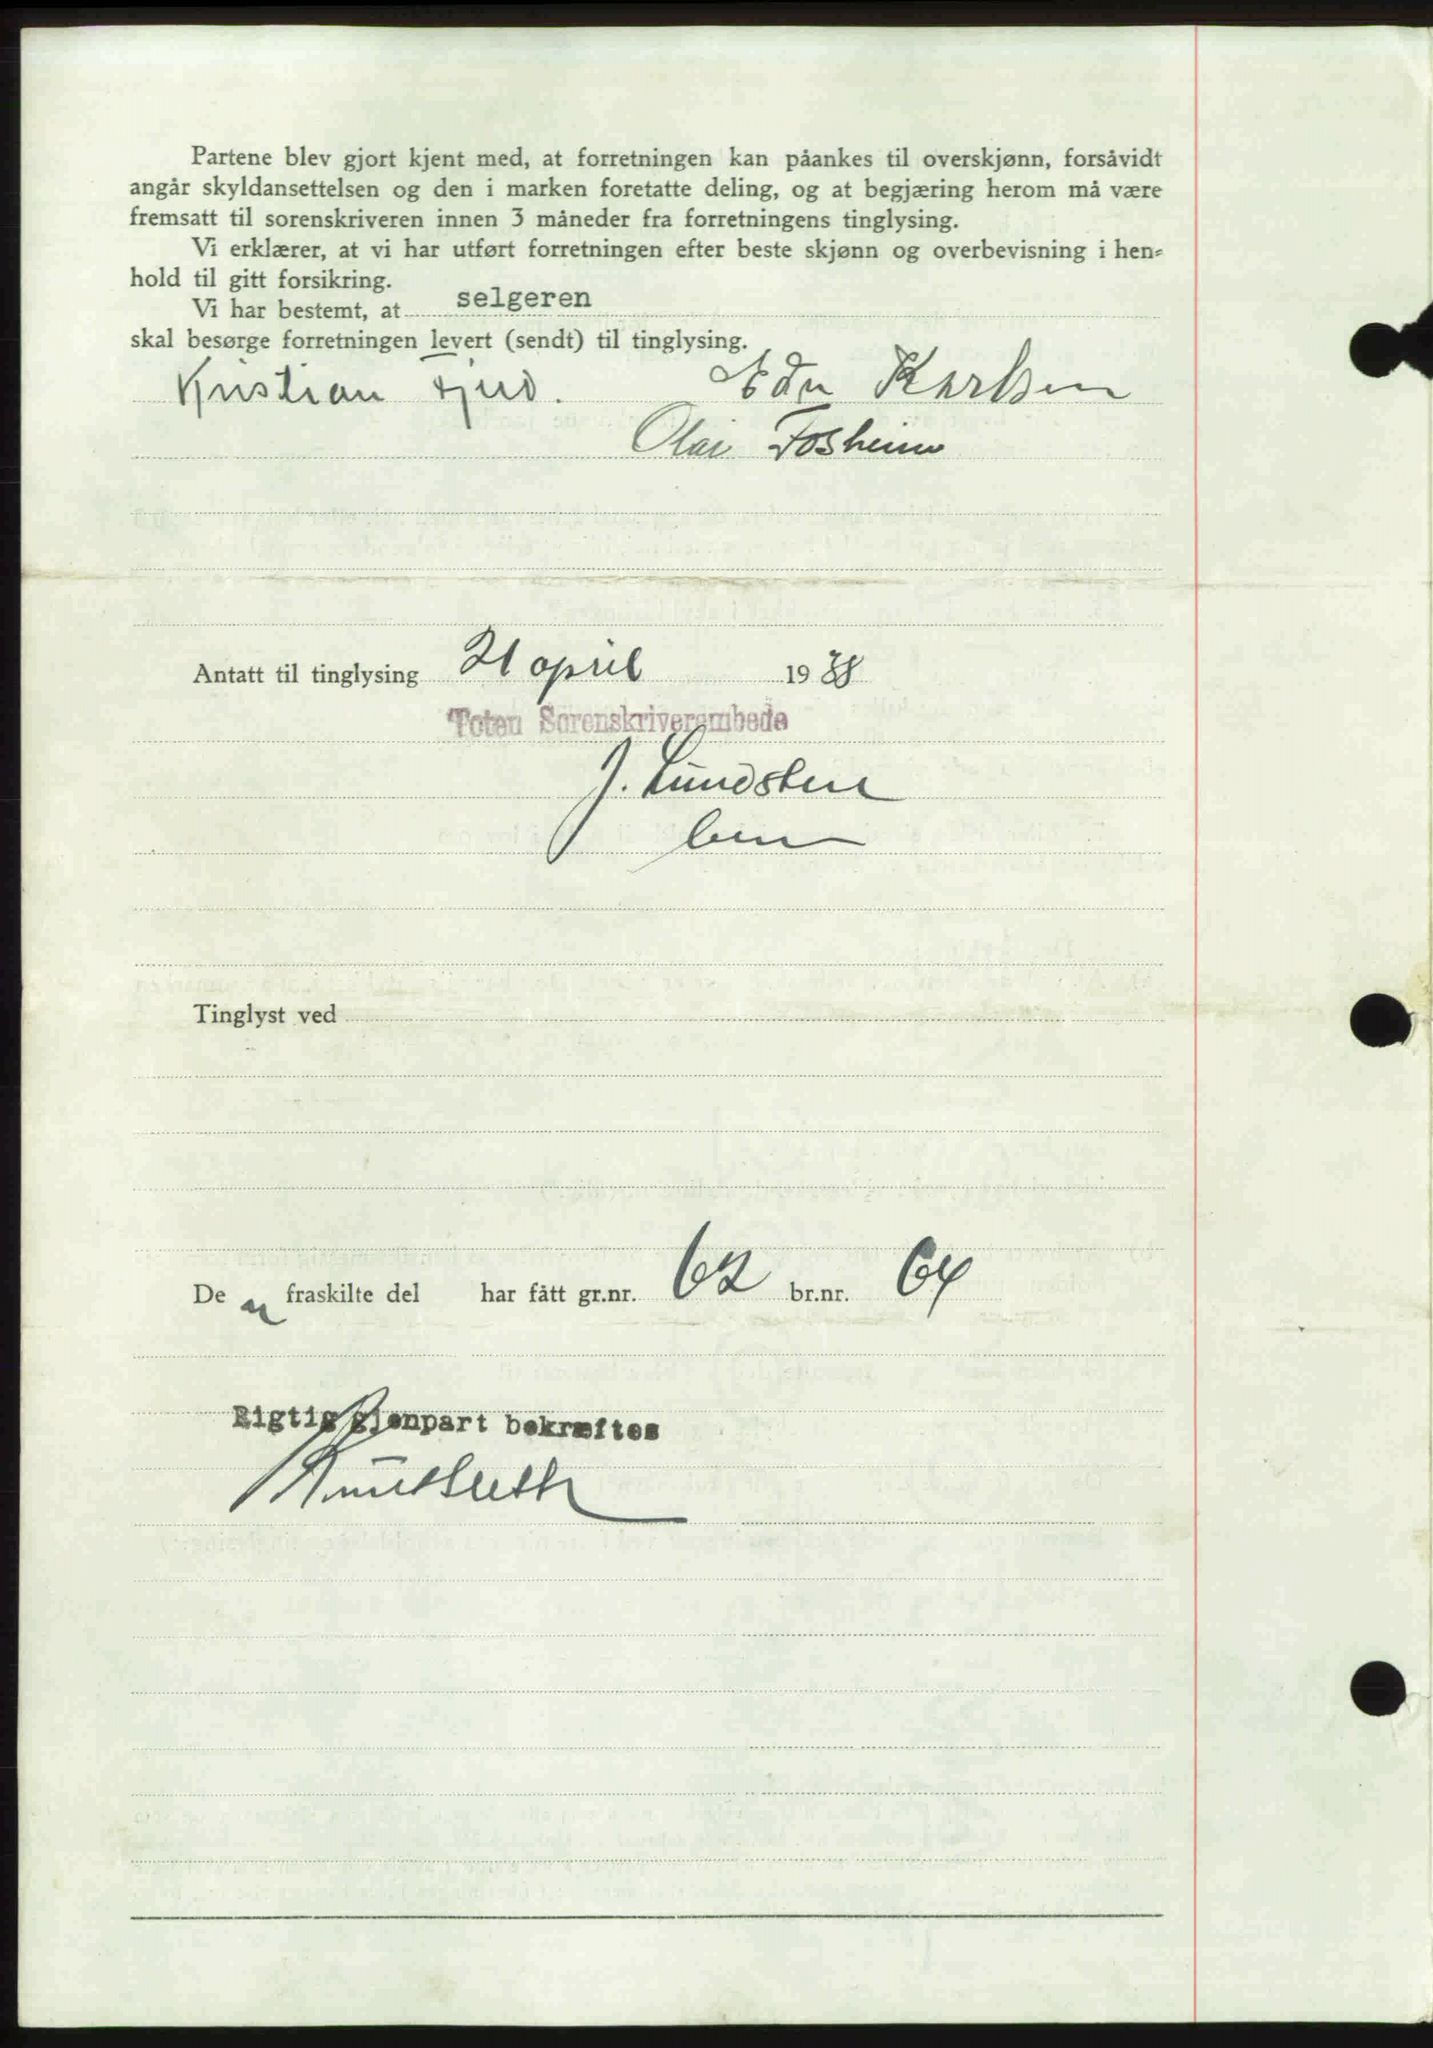 Partene blev gjort kjent med, at forretningen kan påankes til overskjønn, forsåvidt
angår skyldansettelsen og den i marken foretatte deling, og at begjæring herom må være
fremsatt til sorenskriveren innen 3 måneder fra forretningens tinglysing.
Vi erklærer, at vi har utført forretningen efter beste skjønn og overbevisning i hen-
hold til gitt forsikring.
Vi har bestemt, at selgeren
skal besørge forretningen levert (sendt) til tinglysing.
Kristian Fjeld. Edv Karlsen
Olai Fosheim
Antatt til tinglysing 21 april 1938
Toten Sorenskriverembede
J. Lundsten
Tinglyst ved
De n fraskilte del har fått gr.nr. 62 br.nr. 64
Rigtig gjenpart bekræftes